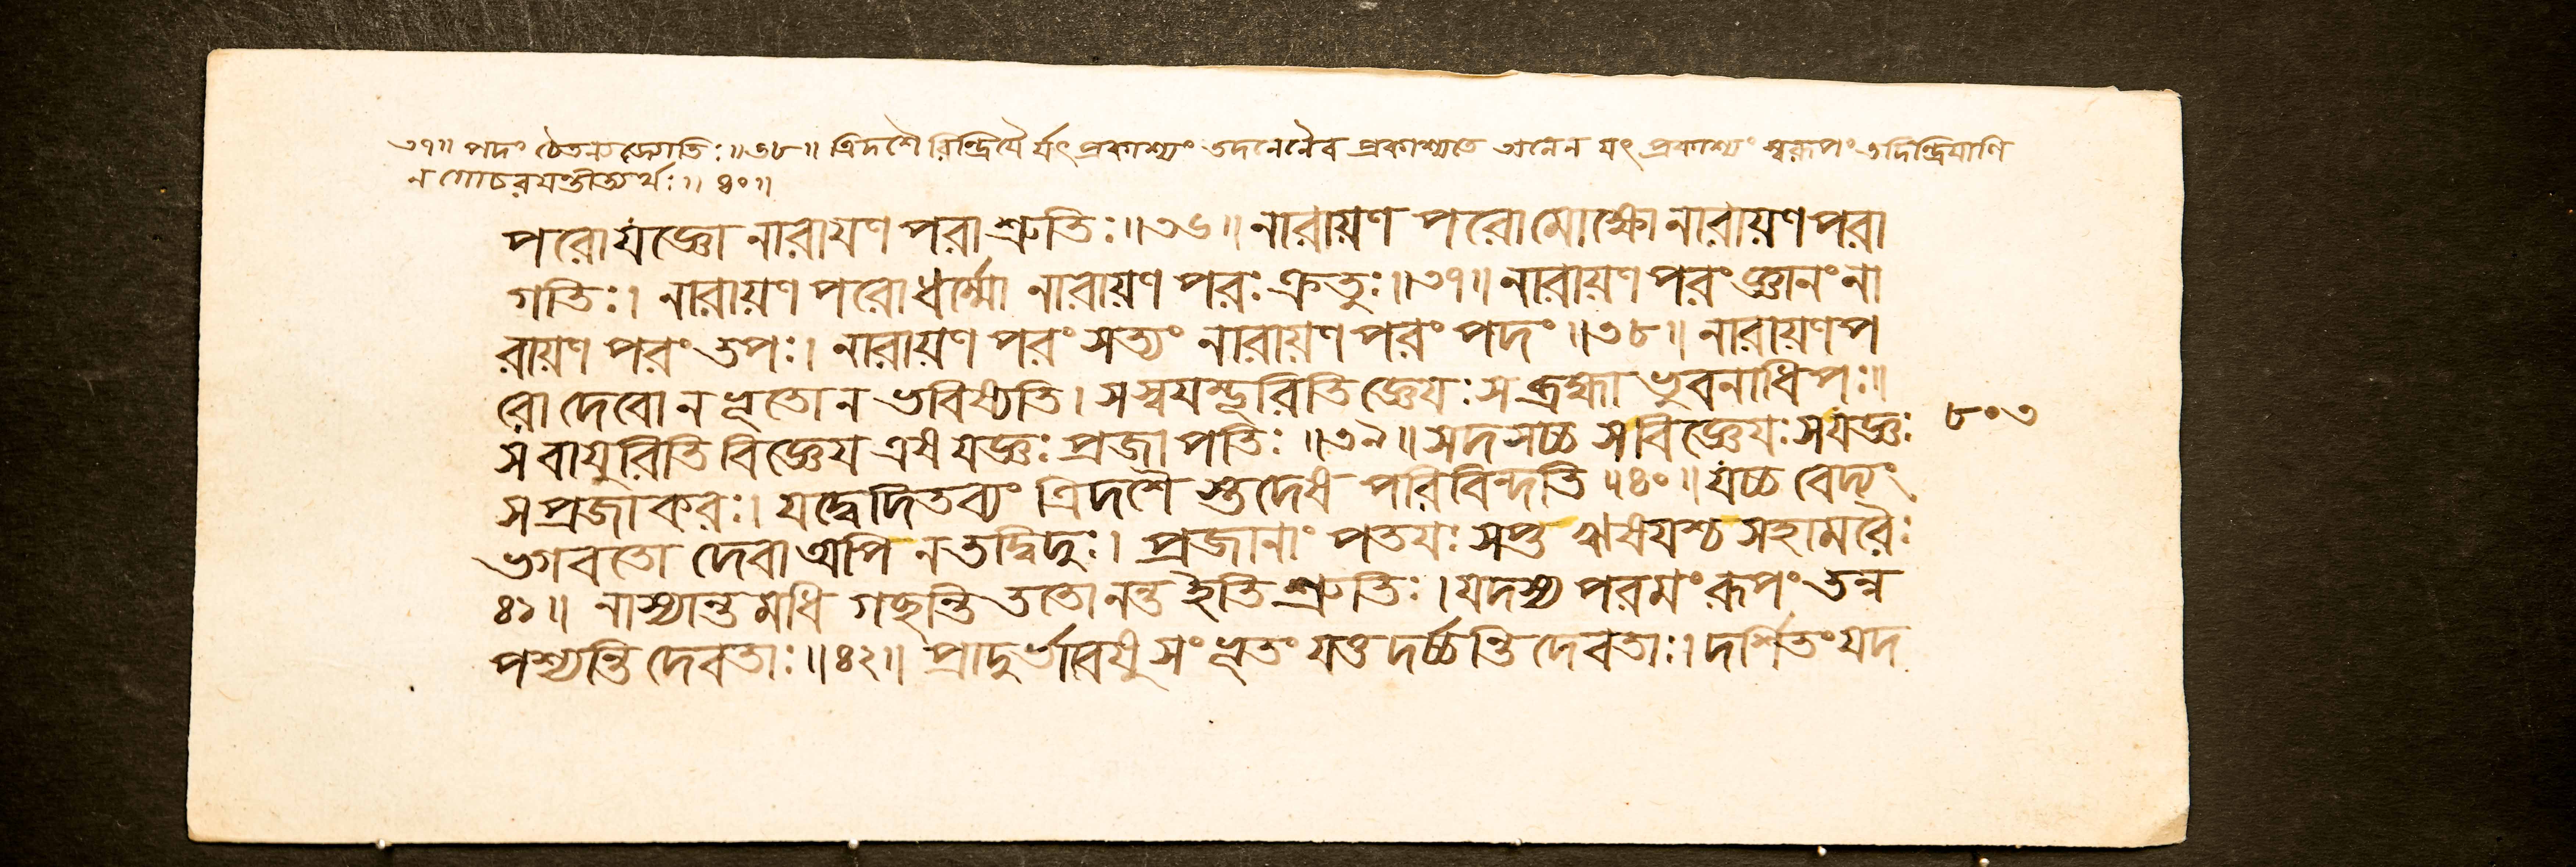 ৩৭॥ পদং চৈতন্যজ্যোতিঃ॥৩৮॥ ত্রিদশৈরিন্দ্রিয়ৈর্যৎ প্রকাশ্যং তদনেনৈব প্রকাশ্যতে অনেন যৎ প্রকাশ্যং স্বরূপং তদিন্দ্রিয়াণি
ন গোচরযন্তীত্যর্থঃ॥ ৪০॥
পরো যজ্ঞো নারাযণ পরা শ্রুতিঃ॥৩৬॥ নারায়ণ পরো মোক্ষো নারায়ণ পরা
গতিঃ। নারায়ণ পরো ধর্ম্মো নারায়ণ পরঃ ক্রতুঃ॥৩৭॥ নারায়ণ পরং জ্ঞানং না
রায়ণ পরং তপঃ। নারায়ণ পরং সত্যং নারায়ণ পরং পদং॥৩৮॥ নারায়ণ প
রো দেবো ন ভূতো ন ভবিষ্যতি। স স্বযম্ভূরিতি জ্ঞেযঃ স ব্রহ্মা ভুবনাধিপঃ॥
স বাযুরিতি বিজ্ঞেয এষ যজ্ঞঃ প্রজাপতিঃ॥৩৯॥ সদসচ্চ স বিজ্ঞেযঃ স যজ্ঞঃ
৮০৩
স প্রজাকরঃ। যদ্বেদিতব্যং ত্রিদশৈ স্তদেষ পরিবিন্দতি॥৪০॥ যচ্চ বেদ্যং
ভগবতো দেবা অপি ন তদ্বিদুঃ। প্রজানাং পতযঃ সপ্ত ঋষযশ্চ সহামরৈঃ
৪১॥ নাস্যান্তমধি গচ্ছন্তি ততোনন্ত ইতি শ্রুতিঃ। যদস্য পরমং রূপং তন্ন
পশ্যন্তি দেবতাঃ॥৪২॥ প্রাদুর্ভাবেষু সংভূতং যত্তদর্চ্চন্তি দেবতাঃ। দর্শিতং যদ